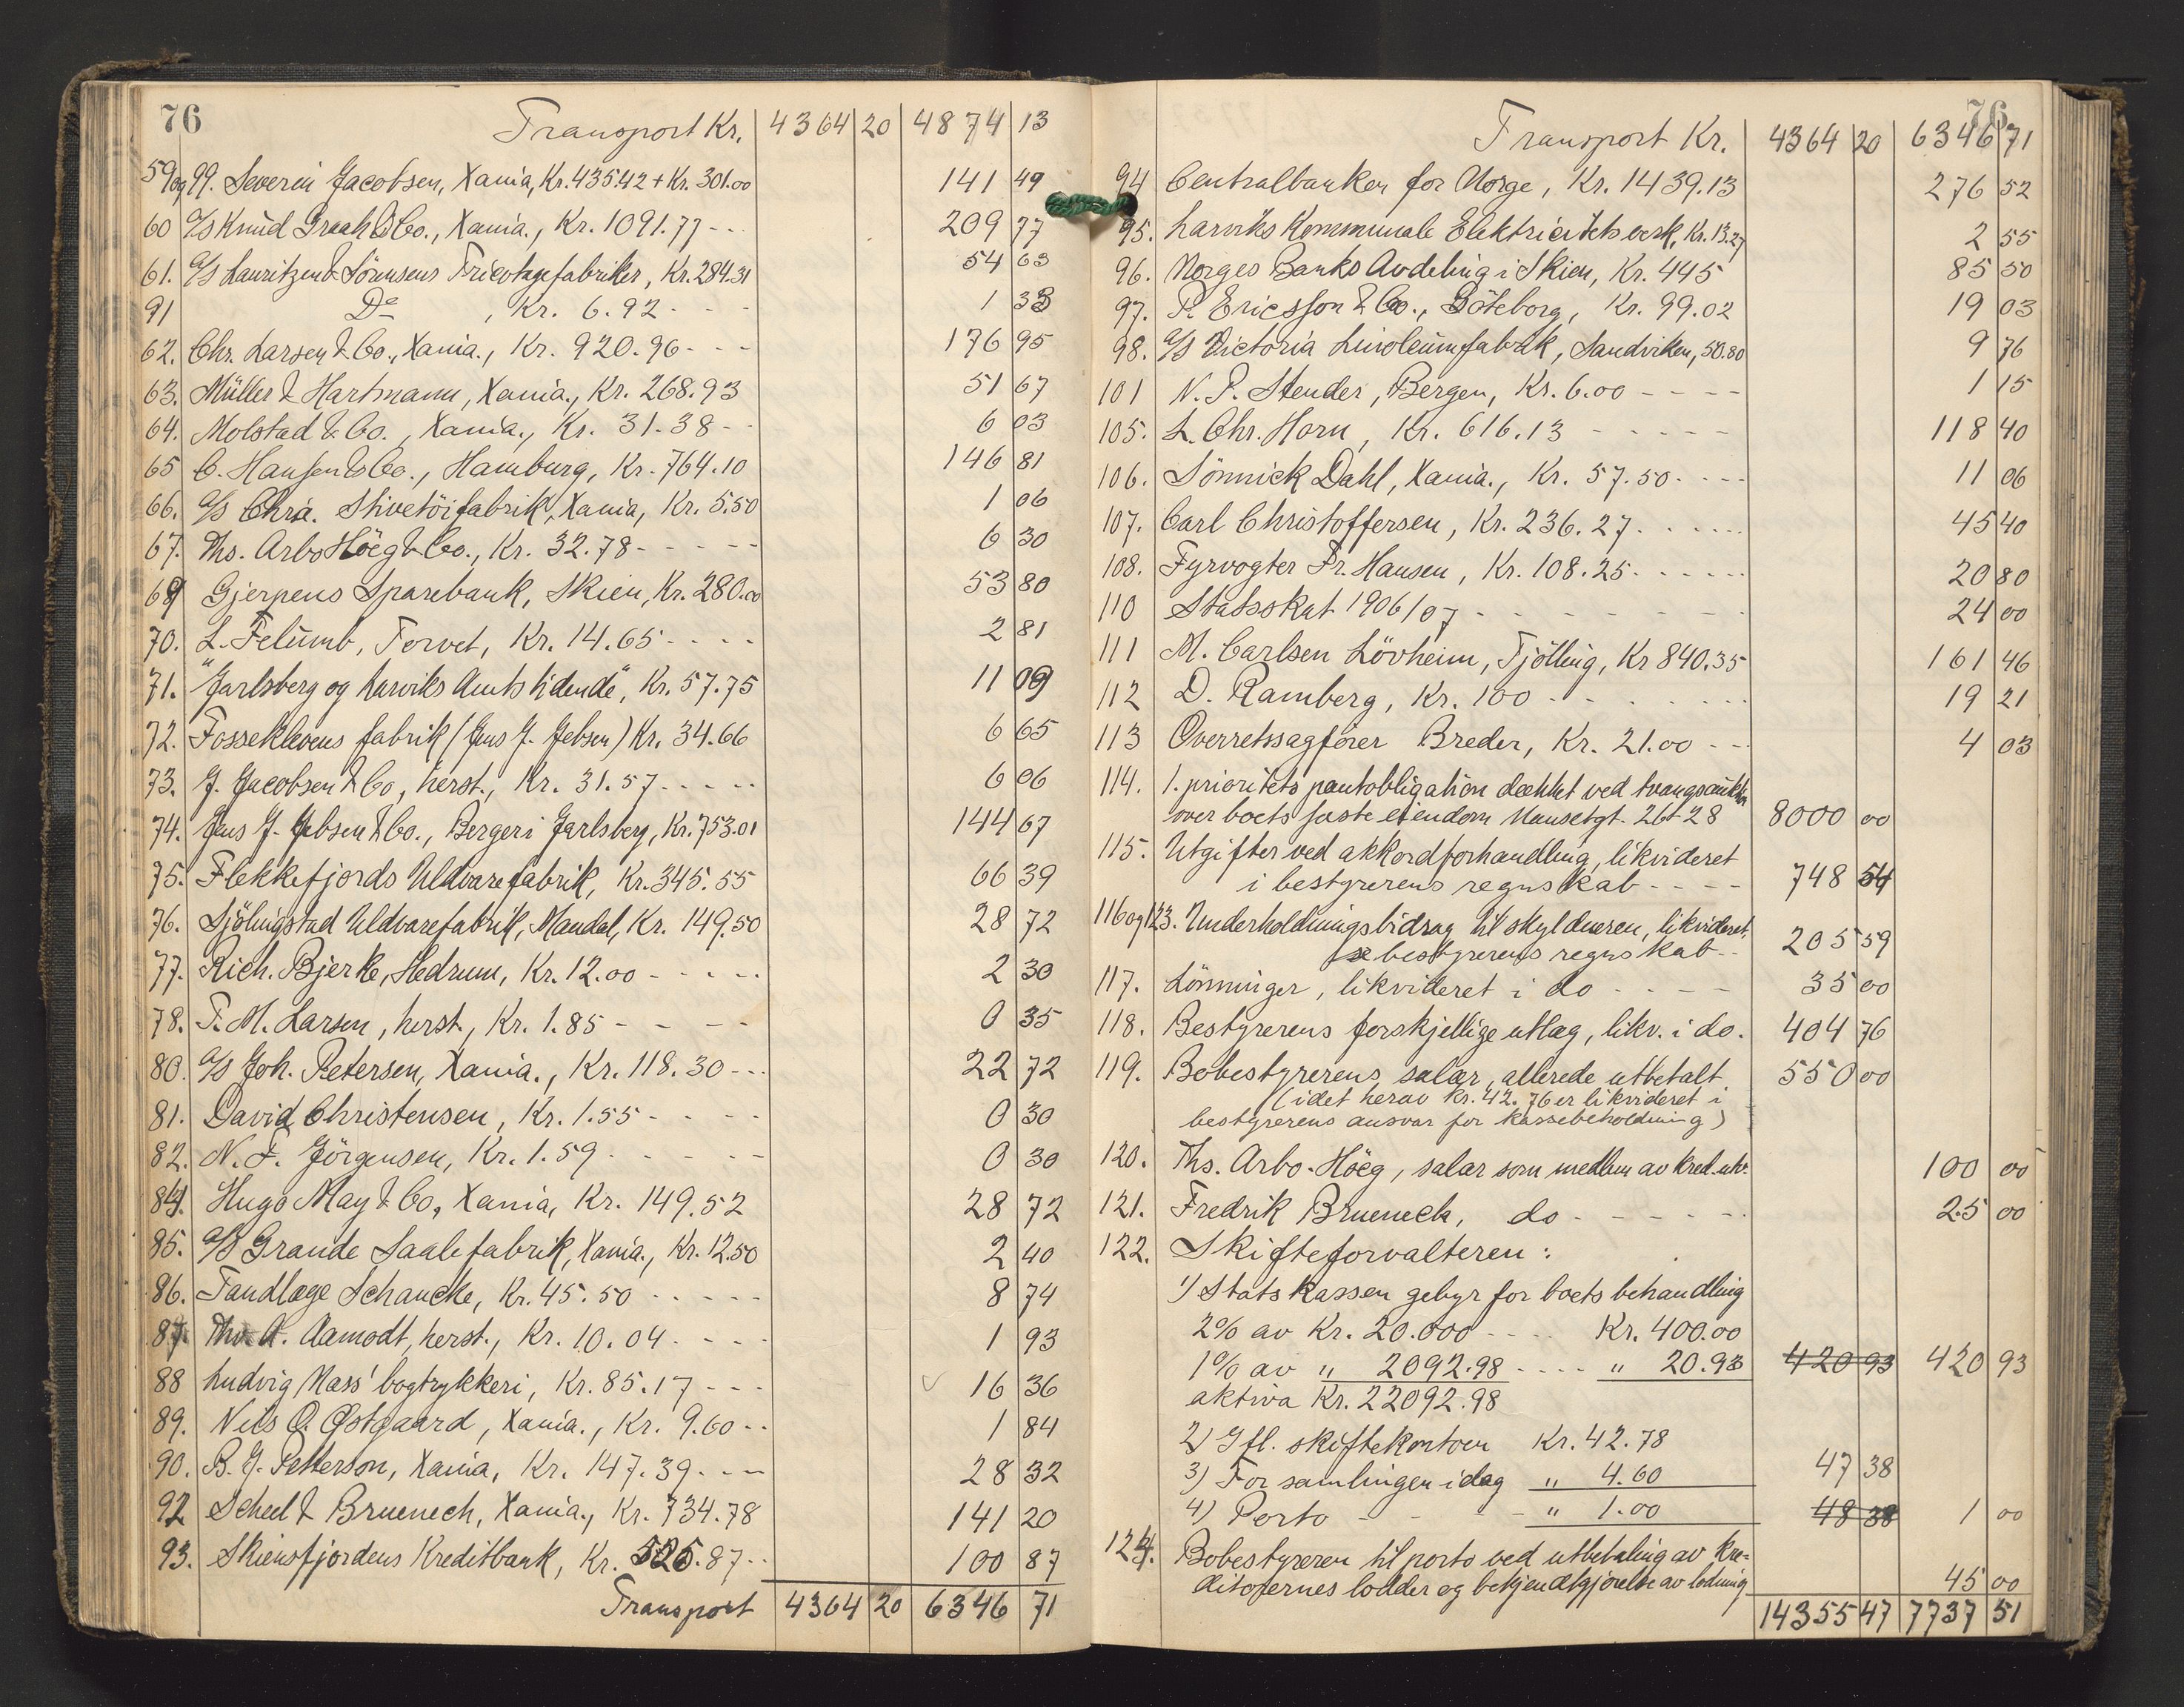 76
Transport Kr. 4364 20 4874 13
59 og 99. Severin Jacobsen, Xania, Kr. 435.42 + Kr. 301.00 141 49
60 A/S Knud Graah & Co., Xania., Kr. 1091.77 - - - 209 77
61. A/S Lauritzen & Sörensens Tricotagefabriker, Kr. 284.31 54 63
91 Do , Kr. 6.92 - - - 1 33
62. Chr. Larsen & Co., Xania., Kr. 920.96 - - - 176 95
63. Müller & Hartmann, Xania., Kr. 268.93 51 67
64. Molstad & Co., Xania., Kr. 31.38 - - 6 03
65 C. Hansen & Co., Hamburg, Kr. 764.10 146 81
66. A/S Chra. Stivetöifabrik, Xania, Kr. 5.50 1 06
67. Ths. Arbo Höeg & Co., Kr. 32.78 - - - - - 6 30
69 Gjerpens Sparebank, Skien, Kr. 280.00 53 80
70. L. Felumb, Torvet, Kr. 14.65 - - - - 2 81
71. "Jarlsberg og Larviks Amtstidende", Kr. 57.75 11 09
72. Fosseklevens fabrik (Jens J. Jebsen) Kr. 34.66 6 65
73. J. Jacobsen & Co, herst., Kr. 31.57 - - - - - 6 06
74. Jens J. Jebsen & Co., Berger i Jarlsberg, Kr. 753.01 144 67
75. Flekkefjords Uldvarefabrik, Kr. 345.55 66 39
76. Sjölingstad Uldvarefabrik, Mandal, Kr. 149.50 28 72
77. Rich. Bjerke, Hedrum, Kr. 12.00 - - - - - 2 30
78. T. M. Larsen, herst., Kr. 1.85 - - - - 0 35
80. A/S Joh. Petersen, Xania., Kr. 118.30 - - - 22 72
81. David Christensen, Kr. 1.55 - - - - 0 30
82. N. F. Jörgensen, Kr. 1.59 - - - - - 0 30
84. Hugo May & Co, Xania, Kr. 149.52 28 72
85. A/S Grande Saalefabrik, Xania., Kr. 12.50 2 40
86. Tandlæge Schancke, Kr. 45.50 - - - - - 8 74
87. Thv. A. Aamodt, herst., Kr. 10.04 - - - - 1 93
88 Ludvig Næss' bogtrykkeri, Kr. 85.17 - - - 16 36
89. Nils O. Østgaard, Xania., Kr. 9.60 - - 1 84
90. B. J. Petterson, Xania, Kr. 147.39 - - - 28 32
92 Scheel & Bruenech, Xania., Kr. 734.78 141 20
93. Skiensfjordens Kreditbank, Kr. 525.87 - - 100 87
Transport 4364 20 6346 71
76
Transport Kr. 4364 20 6346 71
94 Centralbanken for Norge, Kr. 1439.13 276 52
95. Larviks Kommunale Elektricitetsverk, Kr. 13.27 2 55
96. Norges Banks Avdeling i Skien, Kr. 445 85 50
97. P. Ericsson & Co., Göteborg, Kr. 99.02 19 03
98. A/S Victoria Linoleumfabrik, Sandviken, 50.80 9 76
101 N. P. Stender, Bergen, Kr. 6.00 - - - - 1 15
105. L. Chr. Horn, Kr. 616.13 - - - - - 118 40
106. Sönnick Dahl, Xania., Kr. 57.50 - - - - 11 06
107. Carl Christoffersen, Kr. 236.27 - - - - - 45 40
108. Fyrvogter Fr. Hansen, Kr. 108.25 - - - - - 20 80
110 Statsskat 1906/07 - - - - - - - 24 00
111 M. Carlsen Lövheim, Tjölling, Kr 840.35 161 46
112 D. Ramberg, Kr. 100 - - - - - - - 19 21
113 Overretssagförer Breder, Kr. 21.00 - - - 4 03
114. 1. prioritets pantobligation dækket ved tvangsauktion
over boets faste eiendom Nansetgt. 26 + 28 8000 00
115. Utgifter ved akkordforhandling, likvideret
i bestyrerens regnskab - - - - 748 54
116 og 123. Underholdningsbidrag til skyldneren, likvideret,
se bestyrerens regnskab - - 205 59
117. Lönninger, likvideret i do - - - - 35 00
118. Bestyrerens forskjellige utlæg, likv. i do. 404 76
119. Bobestyrerens salær, allerede utbetalt. 550 00
(idet herav Kr. 42.76 er likvideret i
bestyrerens ansvar for kassebeholdning)
120. Ths. Arbo-Höeg, salær som medlem av kred.utv. 100 00
121. Fredrik Bruenech, do - - - - - - 25 00
122. Skifteforvalteren:
1) Statskassen gebyr for boets behandling
2% av Kr. 20.000 - - - - Kr. 400.00
1% av " 2092.98 - - - - " 20.93 420 93 420 93
aktiva Kr. 22092.98
2) Ifl. skiftekontoen Kr. 42.78
3) For samlingen idag " 4.60 47 38
4) Porto - - - - " 1.00 48 38 1 00
124. Bobestyreren til porto ved utbetaling av kre-
ditorernes lodder og bekjendtgjörelse av lodning 45 00
14355 47 7737 51